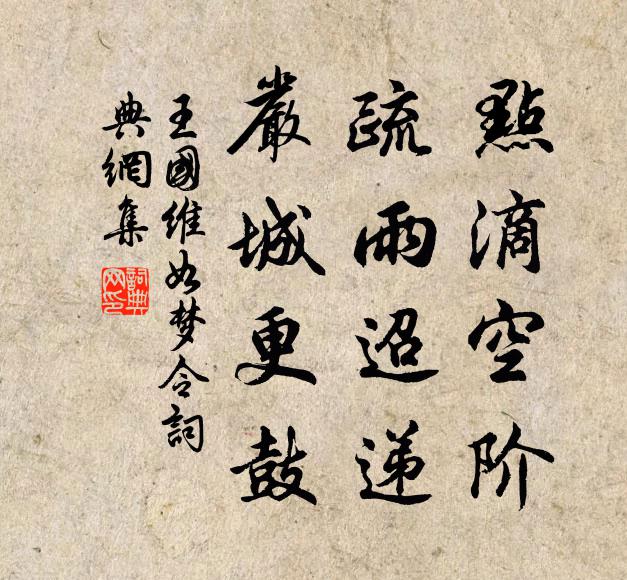 點滴空阶
疏雨迢递
嚴城更鼓
王國維如梦令詞
典網集
詞典网印